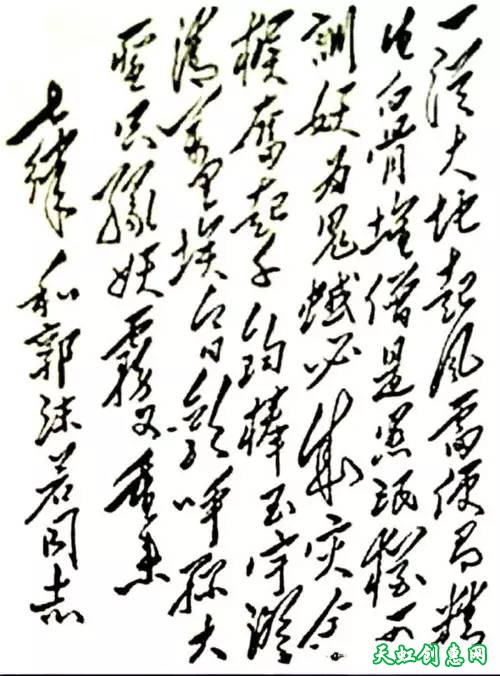 一從大地起风雷便有精
生白骨堆僧是愚氓猶可
訓妖为鬼蜮必成灾金
猴奮起千鈞棒玉宇澄
清萬里埃今日歡呼孫大
聖只緣妖霧又重来
七律 和郭沫若同志
天虹创意网